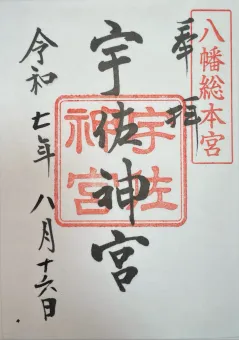 八幡総本宮
奉拝
宇佐神宮
宇佐神宮
令和七年八月十六日